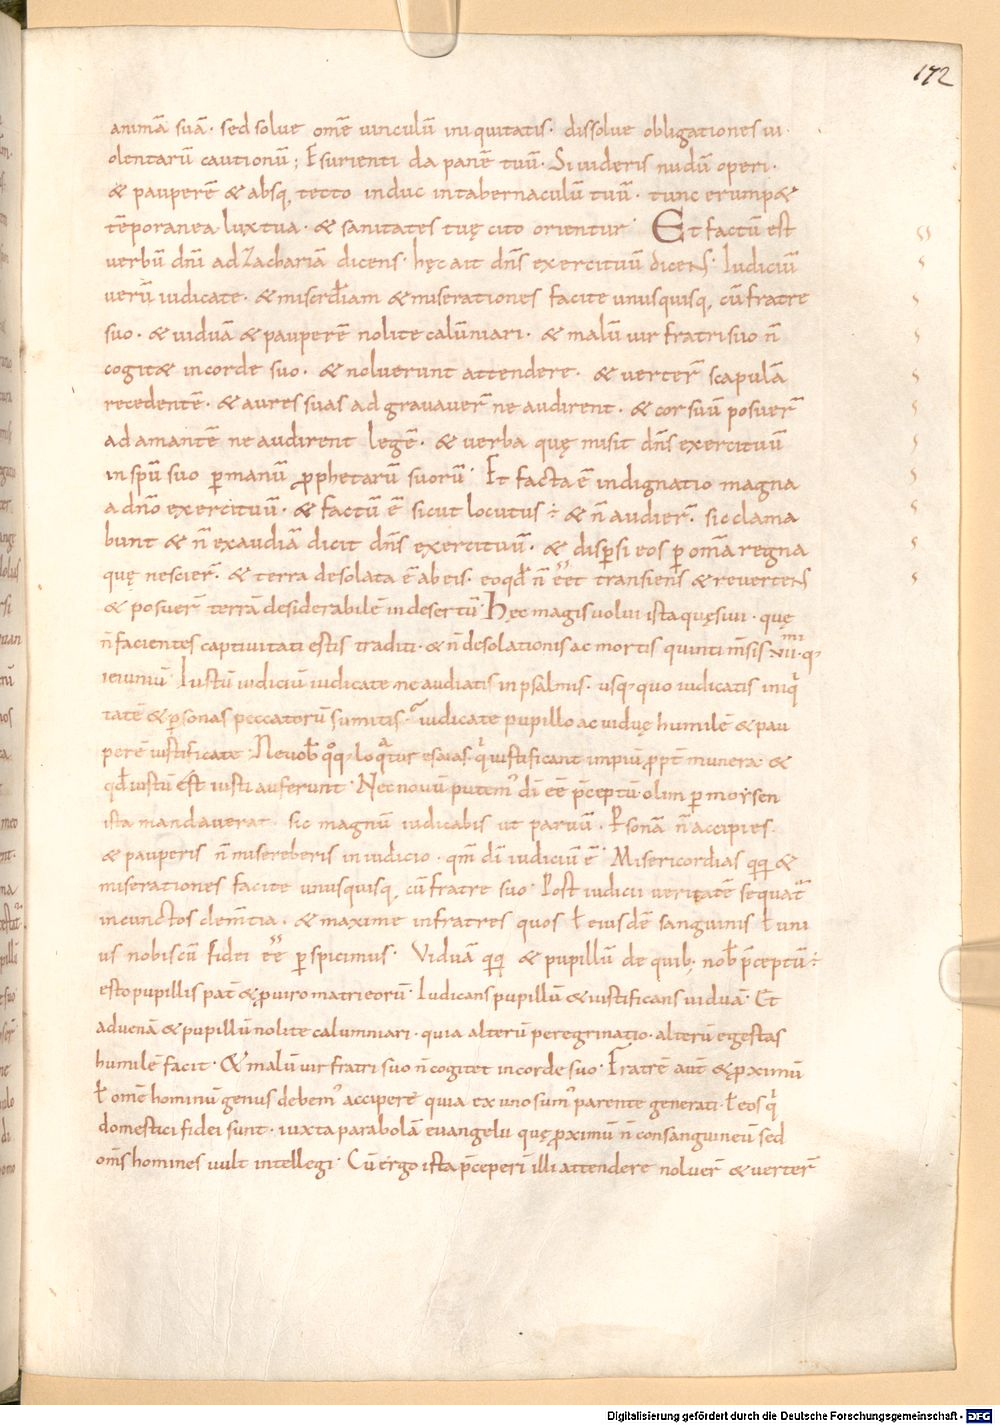 172
animā suā· sed solue omē uinculū iniquitatis· dissolue obligationes ui·
olentarū cautionū; Esurienti da panē tuū· Si uideris nudū operi·
& pauperē & absq; tecto induc intabernaculū tuū· tunc erump&
tēporanea lux tua· & sanitates tuę cito orientur· Et factū est
uerbū dn̄i ad Zachariā dicens· hęc ait dn̄s exercituū dicens· Iudiciū
uerū iudicate· & misc̄rdiam & miserationes facite unusquisq; cū fratre
suo· & uiduā & pauperē nolite calūniari· & malū uir fratri suo n̄
cogit& incorde suo· & noluerunt attendere· & uerter̄ scapulā
recedentē· & aures suas adgrauauer̄ ne audirent· & cor suū posuer̄
adamantē ne audirent legē· & uerba quę misit dn̄s exercituū
in sp̄u suo p̄ manū p̄phetarū suorū· Et facta ē indignatio magna
a dn̄o exercituū· & factū ē sicut locutus ÷ & n̄ audier̄· sic clama
bunt & n̄ exaudiā dicit dn̄s exercituū· & disp̄si eos p̄ om̄a regna
quę nescier̄· & terra desolata ē ab eis· eo qd̄ n̄ eēt transiens & reuertens
& posuer̄ terrā desiderabilē in desertū· Hęc magis uolui ista quęsiui· quę
n̄ facientes captiuitati estis traditi· & n̄ desolationis ac mortis quinti m̄sis
ieiuniū· Iustū iudiciū iudicate ne audiatis in psalmis· usq; quo iudicatis iniq
tatē & p̄sonas peccatorū sumitis· iudicate pupillo ac uiduę humilē & pau
perē iustificate· Ne uob̄ qq; loqtur esaias· q iustificant impiū p̄pt̄ munera· &
qd̄ iustū est iusti auferunt· Nec nouū putem· dī eē p̄ceptū· olim p̄ moysen
ista mandauerat· sic magnū iudicabis ut paruū· P̄sonā n̄ accipies·
& pauperis n̄ misereberis in iudicio· qm̄ dī iudiciū ē· Misericordias qq; &
miserationes facite unusquisq; cū fratre suo· Post iudicii ueritatē sequat̄
in cunctos clem̄tia· & maxime in fratres quos ł eiusdē sanguinis ł uni
us nobiscū fidei eē p̄spicimus· Viduā qq; & pupillū de quib; nob̄ p̄ceptū ÷
esto pupillis pat̄ & p̄ uiro matri eorū· Iudicans pupillū & iustificans uiduā· Et
aduenā & pupillū nolite calumniari· quia alterū peregrinatio· alterū egestas
humilē facit· & malū uir fratri suo n̄ cogitet in corde suo· Fratrē aut̄ & p̄ximū
ł omē hominū genus debem· accipere quia ex uno sum· parente generati· ł eos q
domestici fidei sunt· iuxta parabolā euangelii quę p̄ximū n̄ consanguineū sed
om̄s homines uult intellegi· Cū ergo ista p̄ceperī illi attendere noluer̄ & uerter̄
Digitalisierung gefördert durch die Deutsche Forschungsgemeinschaft - DFG